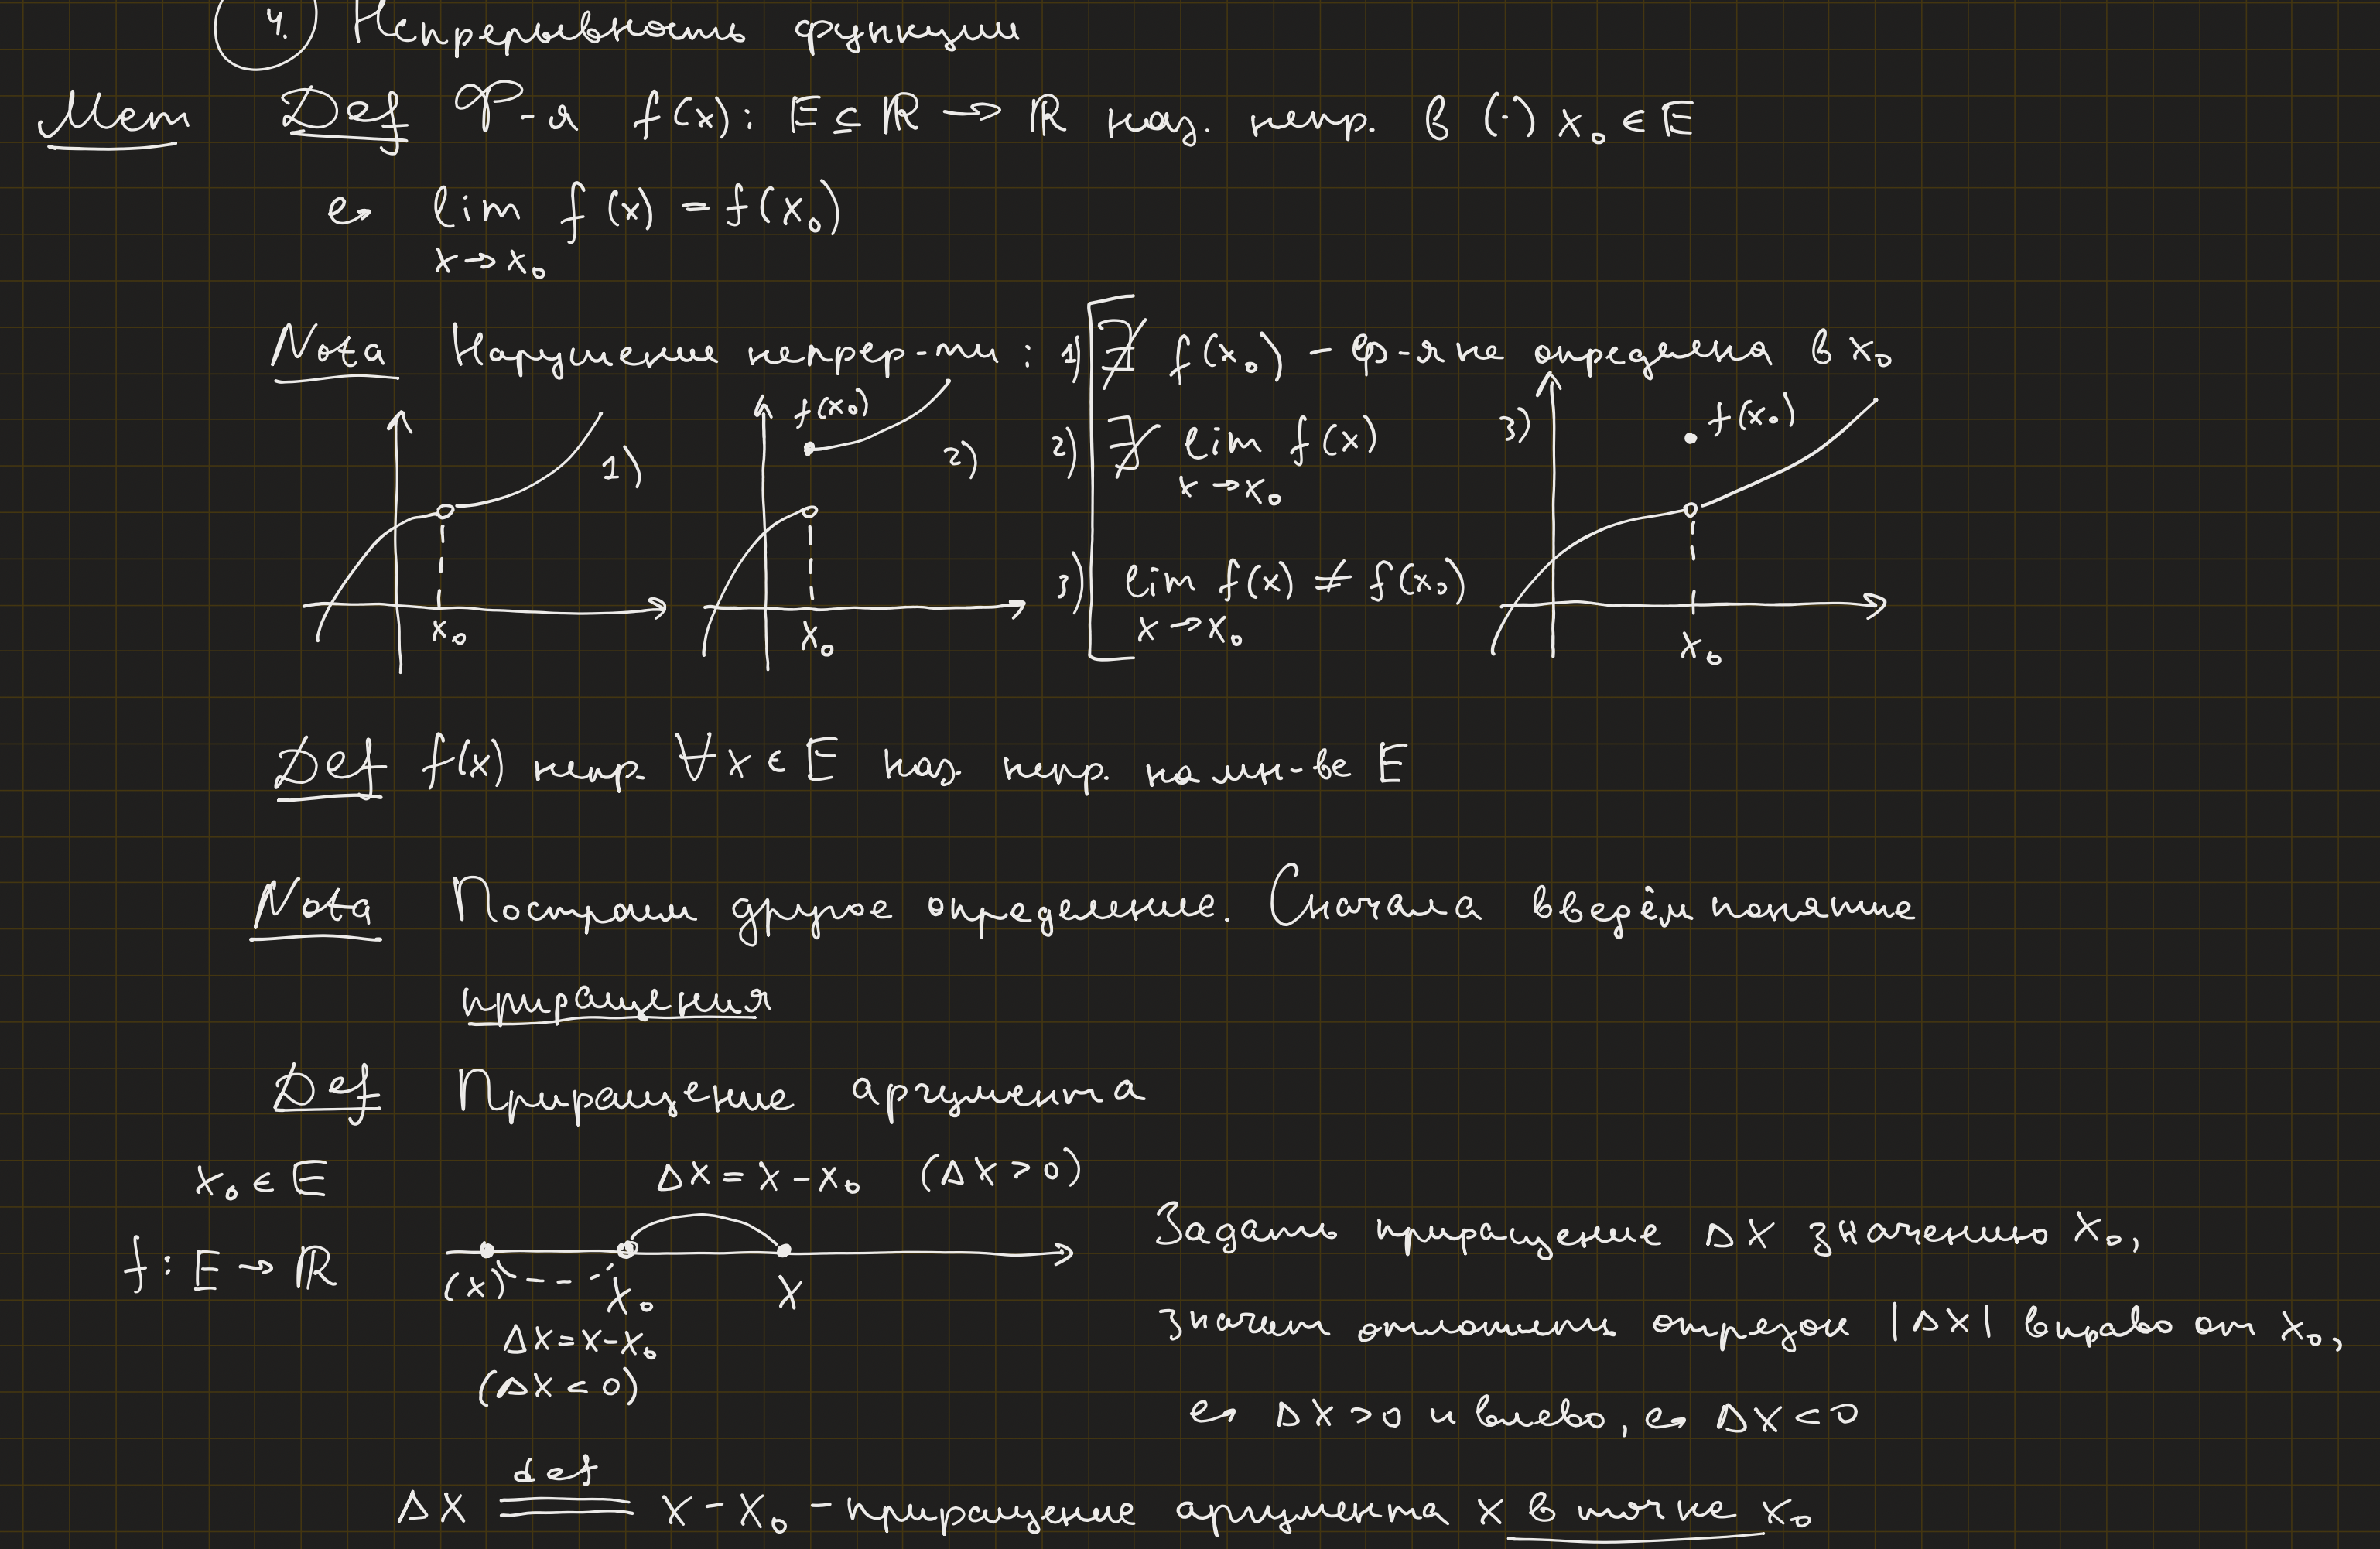 4. Непрерывность функции
Mem Def Ф-я f(x): E ⊆ ℝ → ℝ наз. непр. в (·) x₀ ∈ E
lim f(x) = f(x₀)
x → x₀
Nota Нарушение непрер-ти : 1) ∄ f(x₀) – ф-я не определена в x₀
1)
f(x₀)
2)
2) ∄ lim f(x)
x → x₀
3) f(x₀)
3) lim f(x) ≠ f(x₀)
x → x₀
x₀
x₀
x₀
Def f(x) непр. ∀ x ∈ E наз. непр. на мн-ве E
Nota Построим другое определение. Сначала введём понятие
приращения
Def Приращение аргумента
x₀ ∈ E
Δx = x – x₀ (Δx > 0)
f : E → ℝ
(x) x₀ x
Δx = x – x₀
(Δx < 0)
Задать приращение Δx значению x₀,
значит отложить отрезок |Δx| вправо от x₀,
Δx > 0 и влево, Δx < 0
def
Δx = x – x₀ – приращение аргумента x в точке x₀